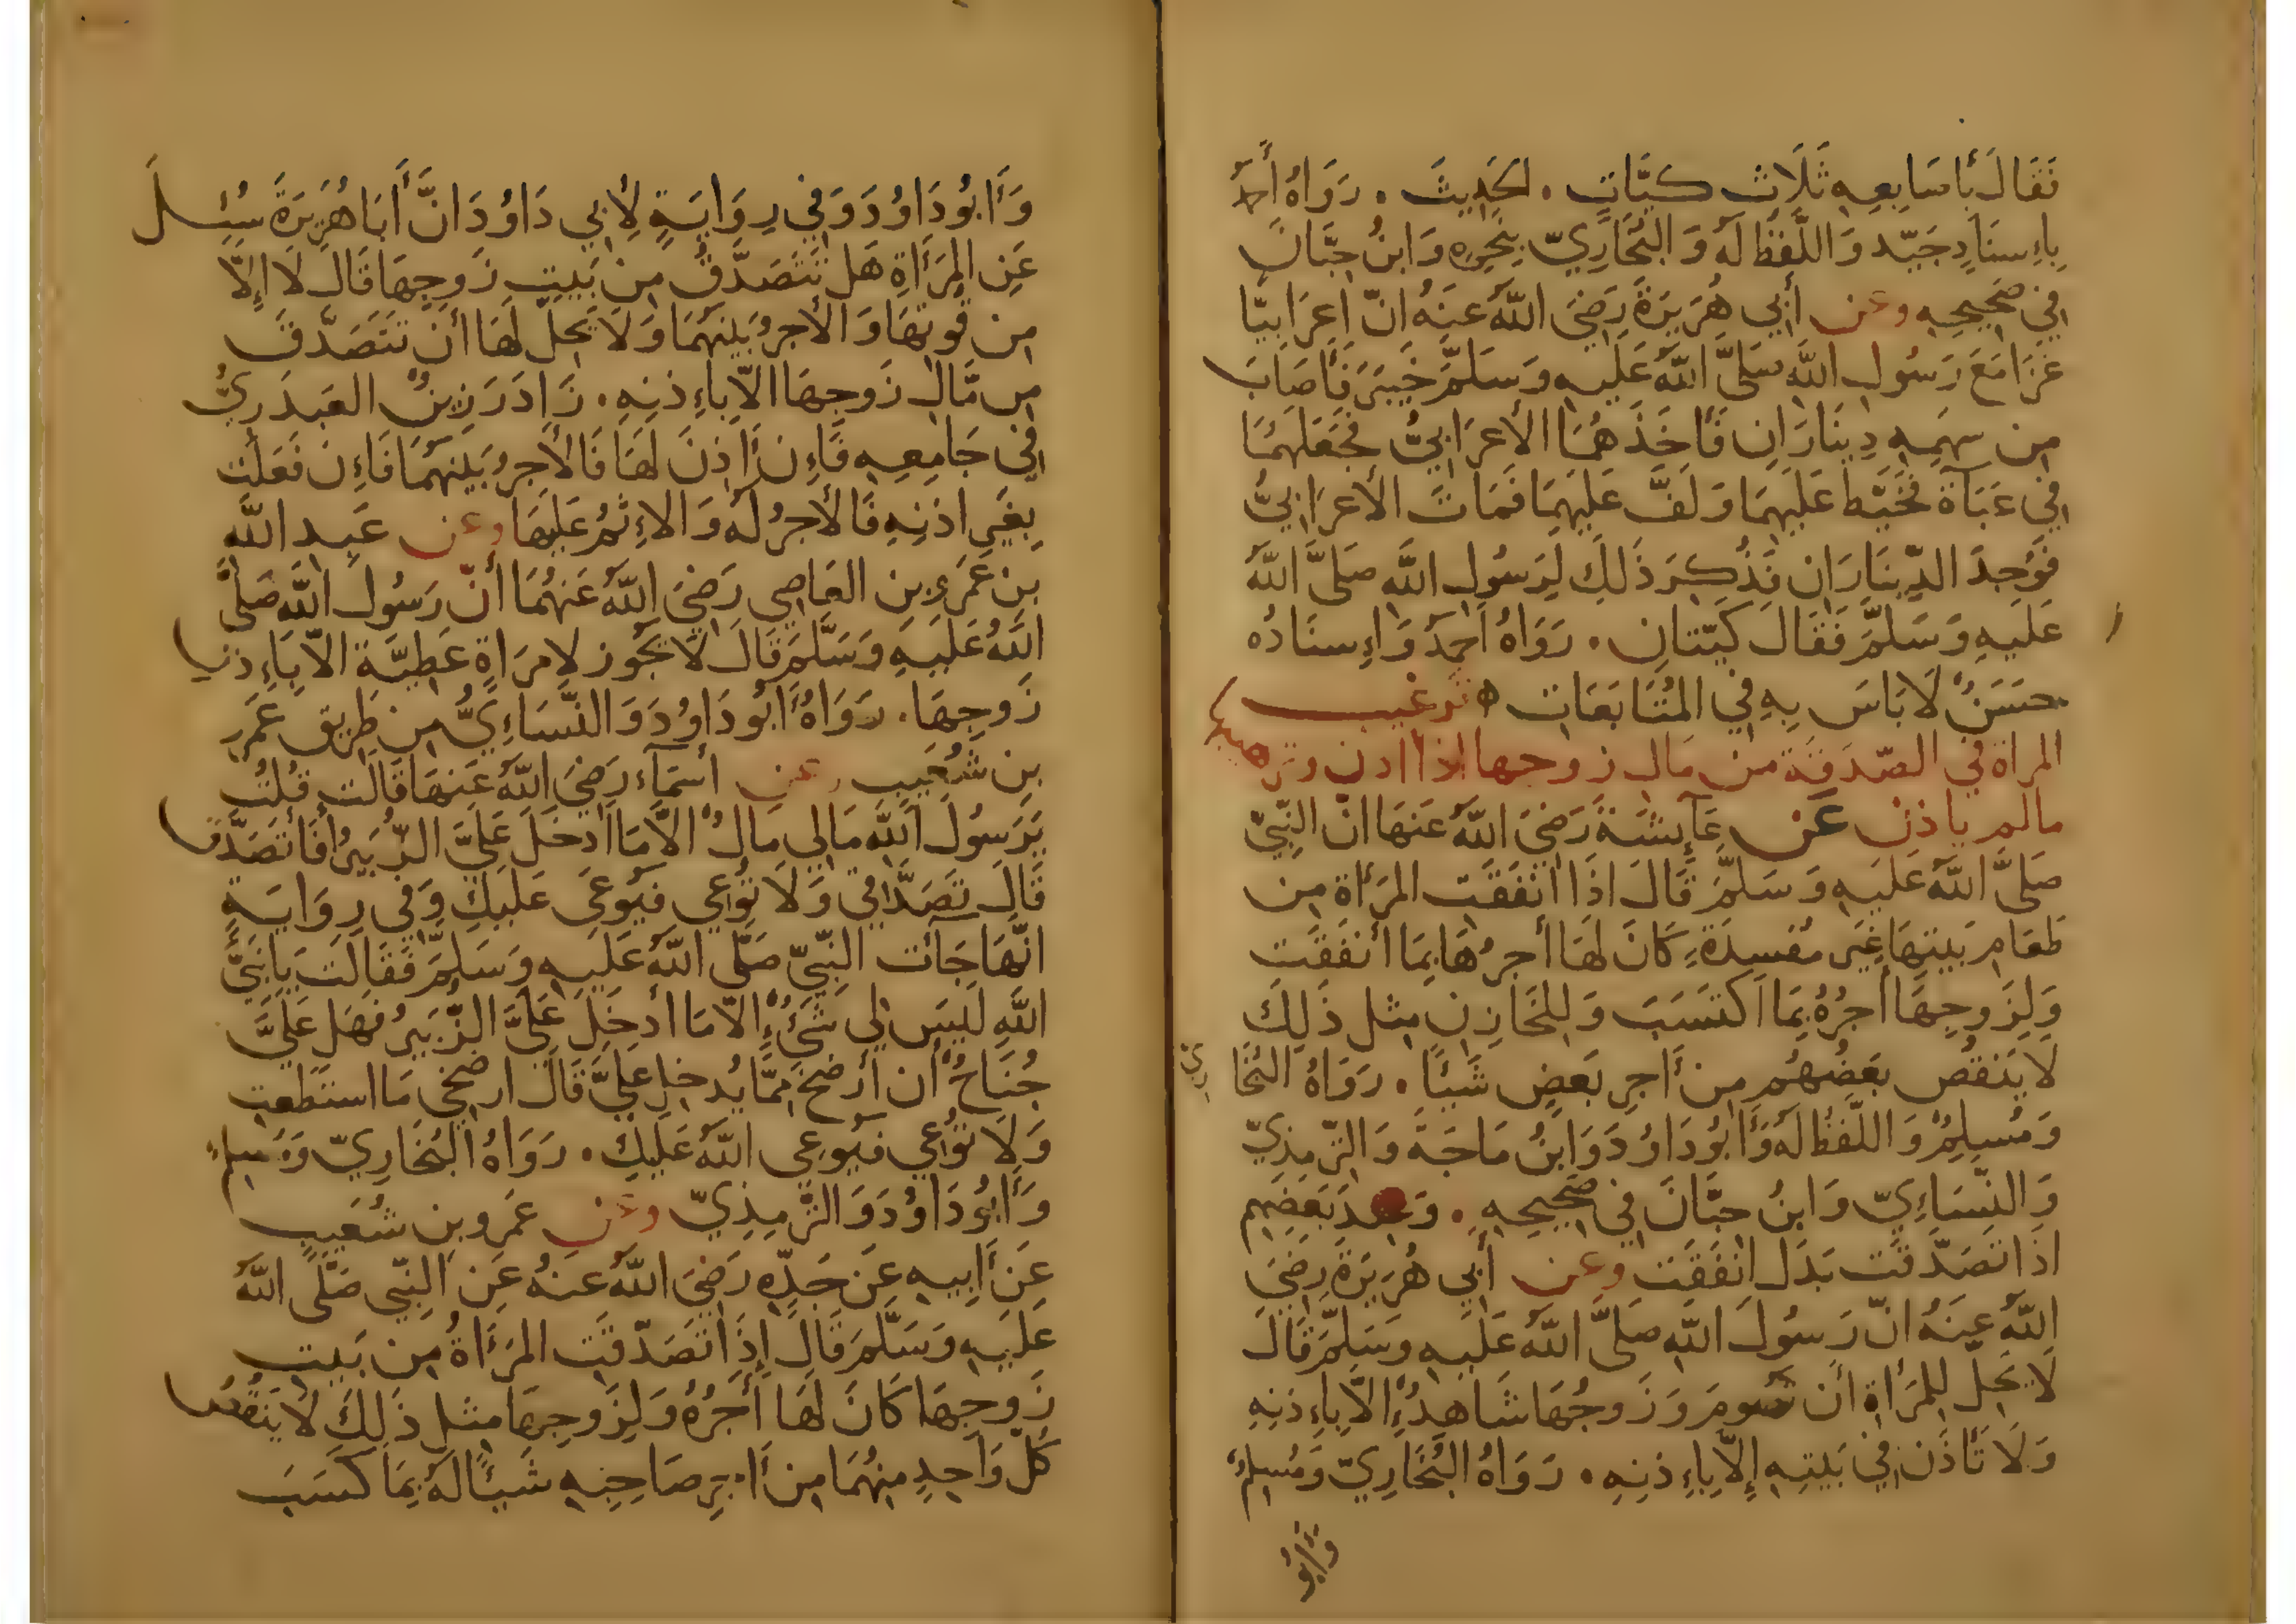 فَقَالَ بَأَصَابِعِهِ ثَلَاثَ كَيَّاتٍ . الحَدِيثَ . رَوَاهُ أَحمَدُ
بِاءِسنَادٍ جَيّد وَاللَّفظُ لَهُ وَالبُخَارِيّ بِنَحوِهِ وَابنُ حِبَّانَ
فِي صَحِيحِهِ وعن أَبِي هُرَيرَةَ رَضِيَ اللَّهُ عَنهُ انّ اَعرَابِيًّا
غَزَا مَعَ رَسُولِ اللَّهِ صَلَّى اللَّهُ عَلَيهِ وَسَلَّمَ خَيبَرَ فَأَصَابَ
مِن سَهمِهِ دِينَارَانِ فَأَخَذَهُمَا الأعرَابِيُّ فَجَعَلَهُمَا
فِي عَبَآةٍ فَخَيَّطَ عَلَيهِمَا وَلَفَّ عَلَيهِمَا فَمَاتَ الأعرَابِيُّ
فَوُجِدَ الدِّينَارَانِ فَذُكِرَ ذَلِكَ لِرَسُولِ اللَّهِ صَلَّى اللَّهُ
عَلَيهِ وَسَلَّمَ فَقَالَ كَيَّتَانِ . رَوَاهُ اَحمَدُ وَاءِسنَادُه
حَسَنٌ لَا بَاسَ بِهِ فِي المُتَابَعَاتِ ه ترغيب
المراة في الصّدقة من مال زوجها اذا اذن وترهيبها
مالم ياذن عَن عَآئِشَةَ رَضِيَ اللَّهُ عَنهَا انّ النَّبِيّ
صَلَّى اللَّهُ عَلَيهِ وَسَلَّمَ قَالَ اذَا انفَقَت المَرأَة مِن
طَعَامِ بَيتِهَا غَيرَ مُفسِدَةٍ كَانَ لَهَا أجرُهَا بِمَا أنفَقَت
وَلِزَوجِهَا أجرُهُ بِمَا اَكتَسَبَ وَلِلخَازِنِ مِثل ذَلِكَ
لَا يَنقُص بَعضُهُم مِن أَجرِ بَعضٍ شَيئًا . رَوَاهُ البُخَارِيّ
وَمُسلِمٌ وَاللَّفظُ لَهُ وَأَبُو دَاوُدَ وَابنُ مَاجَةَ وَالتِّرمِذِيّ
وَالنَّسَاءِيّ وَابنُ حِبَّانَ فِي صَحِيحِهِ . وَعِندَ بَعضِهِم
اذَا تَصَدَّقَت بَدَل انفَقَت وعن أَبِي هُرَيرَةَ رَضِيَ
اللَّهُ عَنهُ انّ رَسُولَ اللَّهِ صَلَّى اللَّهُ عَلَيهِ وَسَلَّمَ قَالَ
لَا يَحِلّ لِلمَرأَةِ أَن تَصُومَ وَزَوجُهَا شَاهِدٌ إِلاَّ بِاءِذنِهِ
وَلَا تَأذَن فِي بَيتِهِ إِلاَّ بِاءِذنِهِ . رَوَاهُ البُخَارِيّ وَمُسلِمٌ
وَأَبُو
وَأَبُو دَاوُدَ وَفِي رِوَايَةٍ لِأَبِي دَاوُدَ انَّ أَبَا هُرَيرَةَ سُئِلَ
عَنِ المَرأَةِ هَل تَتَصَدَّقُ مِن بَيتِ زَوجِهَا قَالَ لَا إِلاَّ
مِن قُوتِهَا وَالأجرُ بَينَهُمَا وَلَا يَحِلّ لَهَا أَن تَتَصَدَّقَ
مِن مَّالِ زَوجِهَا الاَّ بِاءِذنِهِ . زَادَ رَزِينٌ العَبدَرِيُّ
فِي جَامِعِهِ فَاءِن أَذِنَ لَهَا فَالأجرُ بَينَهُمَا فَاءِن فَعَلَت
بِغَيرِ اذنِهِ فَالأجرُ لَهُ وَالاءِثمُ عَلَيهَا وعن عَبدِ اللَّهِ
بنِ عَمرِو بنِ العَاصِي رَضِيَ اللَّهُ عَنهُمَا أنّ رَسُولَ اللَّهِ صَلَّى
اللَّهُ عَلَيهِ وَسَلَّمَ قَالَ لَا يَجُوز لِامرَاةٍ عَطِيَّة الاَّ بِاءِذنِ
زَوجِهَا . رَوَاهُ أَبُو دَاوُدَ وَالنَّسَاءِيُّ مِن طَرِيقِ عَمرِو
بنِ شُعَيبٍ وعن أسمَآءَ رَضِيَ اللَّهُ عَنهَا قَالَت قُلتُ
يَرَسُولَ اللَّهِ مَالِي مَالٌ الاَّ مَا اَدخَلَ عَلَيَّ الزُّبَيرُ أَفَأَتَصَدَّق
قَالَ تَصَدَّقِي وَلَا تُوعِي فَيُوعَى عَلَيكِ وَفِي رِوَايَةٍ
انَّهَا جَآَت النَّبِيّ صَلَّى اللَّهُ عَلَيهِ وَسَلَّمَ فَقَالَت يَا نَبِيَّ
اللَّهِ لَيسَ لِي شَيءٌ الاَّ مَا ادخَلَ عَلَيَّ الزُّبَيرُ فَهَل عَلَيَّ
جُنَاحٌ أن أرضَخَ مِمَّا يُدخِل عَلَيَّ قَالَ ارضَخِي مَا استَطَعتِ
وَلَا تُوعِي فَيُوعِي اللَّهُ عَلَيكِ . رَوَاهُ البُخَارِيّ وَمُسلِمٌ
وَأَبُو دَاوُدَ وَالتِّرمِذِيّ وعن عَمرِو بنِ شُعَيبٍ
عَن أَبِيهِ عَن جَدِّهِ رَضِيَ اللَّهُ عَنهُ عَنِ النَّبِيّ صَلَّى اللَّهُ
عَلَيهِ وَسَلَّمَ قَالَ إِذَا تَصَدَّقَت المَرأَةُ مِن بَيتِ
زَوجِهَا كَانَ لَهَا أَجرُهُ وَلِزَوجِهَا مِثل ذَلِكَ لَا يَنقُصُ
كُلّ وَاحِدٍ مِنهُمَا مِن أَجرِ صَاحِبِهِ شَيئًا لَهُ بِمَا كَسَبَ